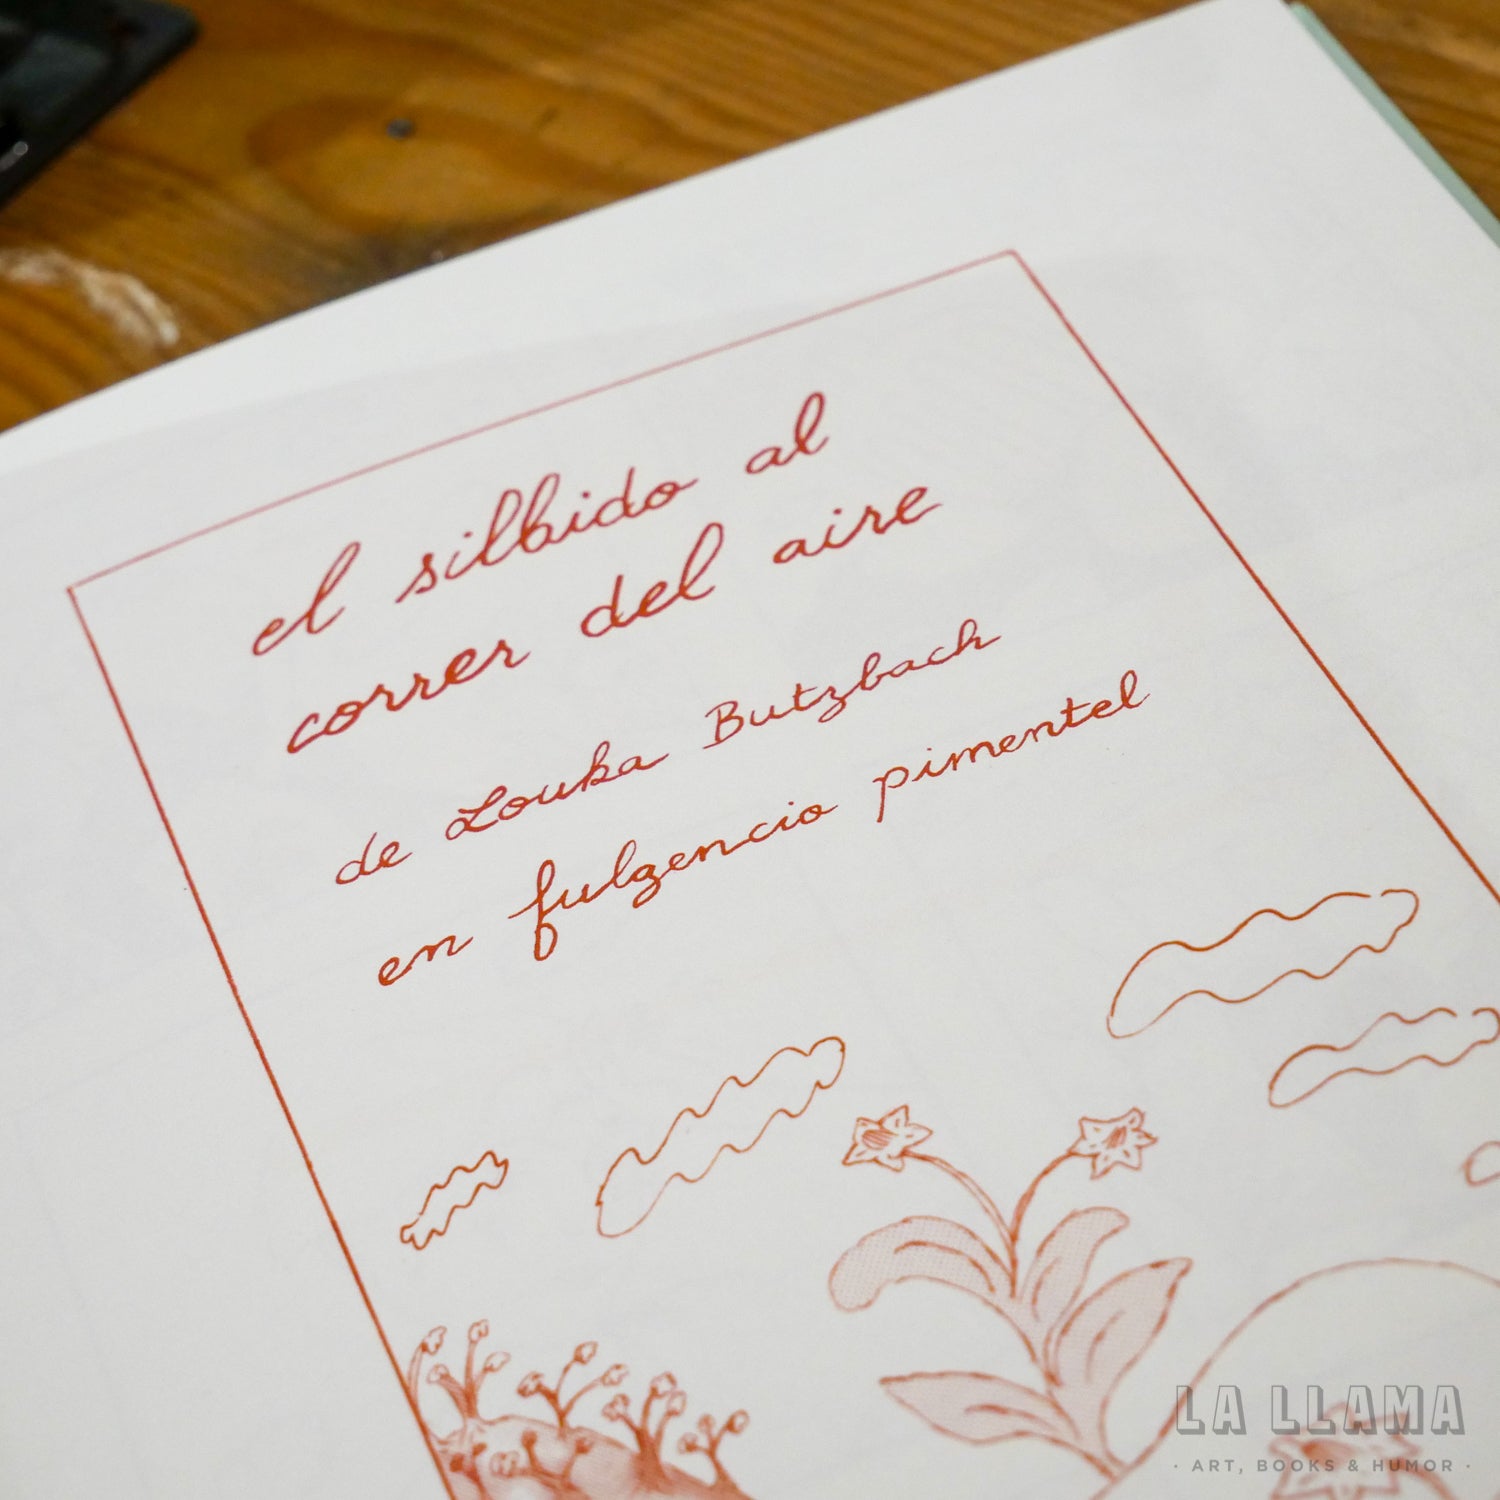 el silbido al
correr del aire
de Louka Butzbach
en fulgencio pimentel
LA LLAMA
· ART, BOOKS & HUMOR ·